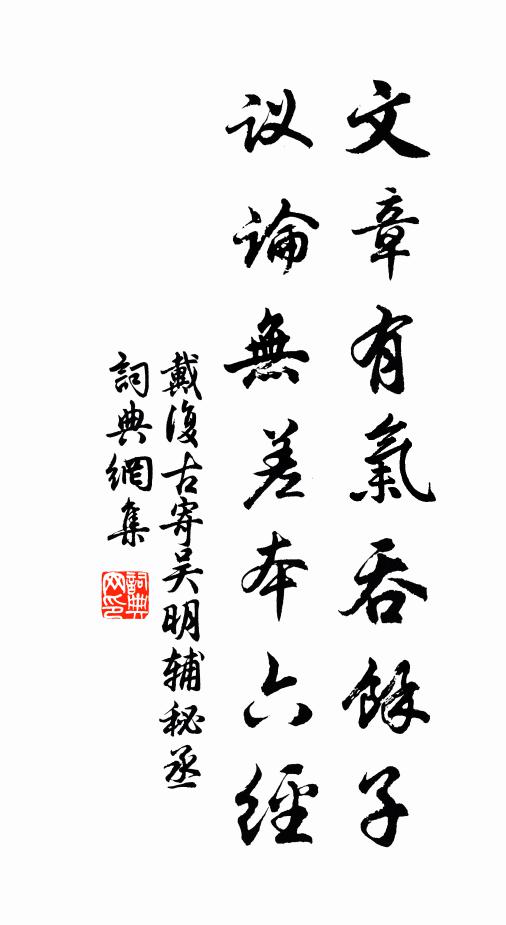 文章有氣吞餘子
议論無差本六經
戴復古寄吴明辅秘丞
詞典網集
詞典网印